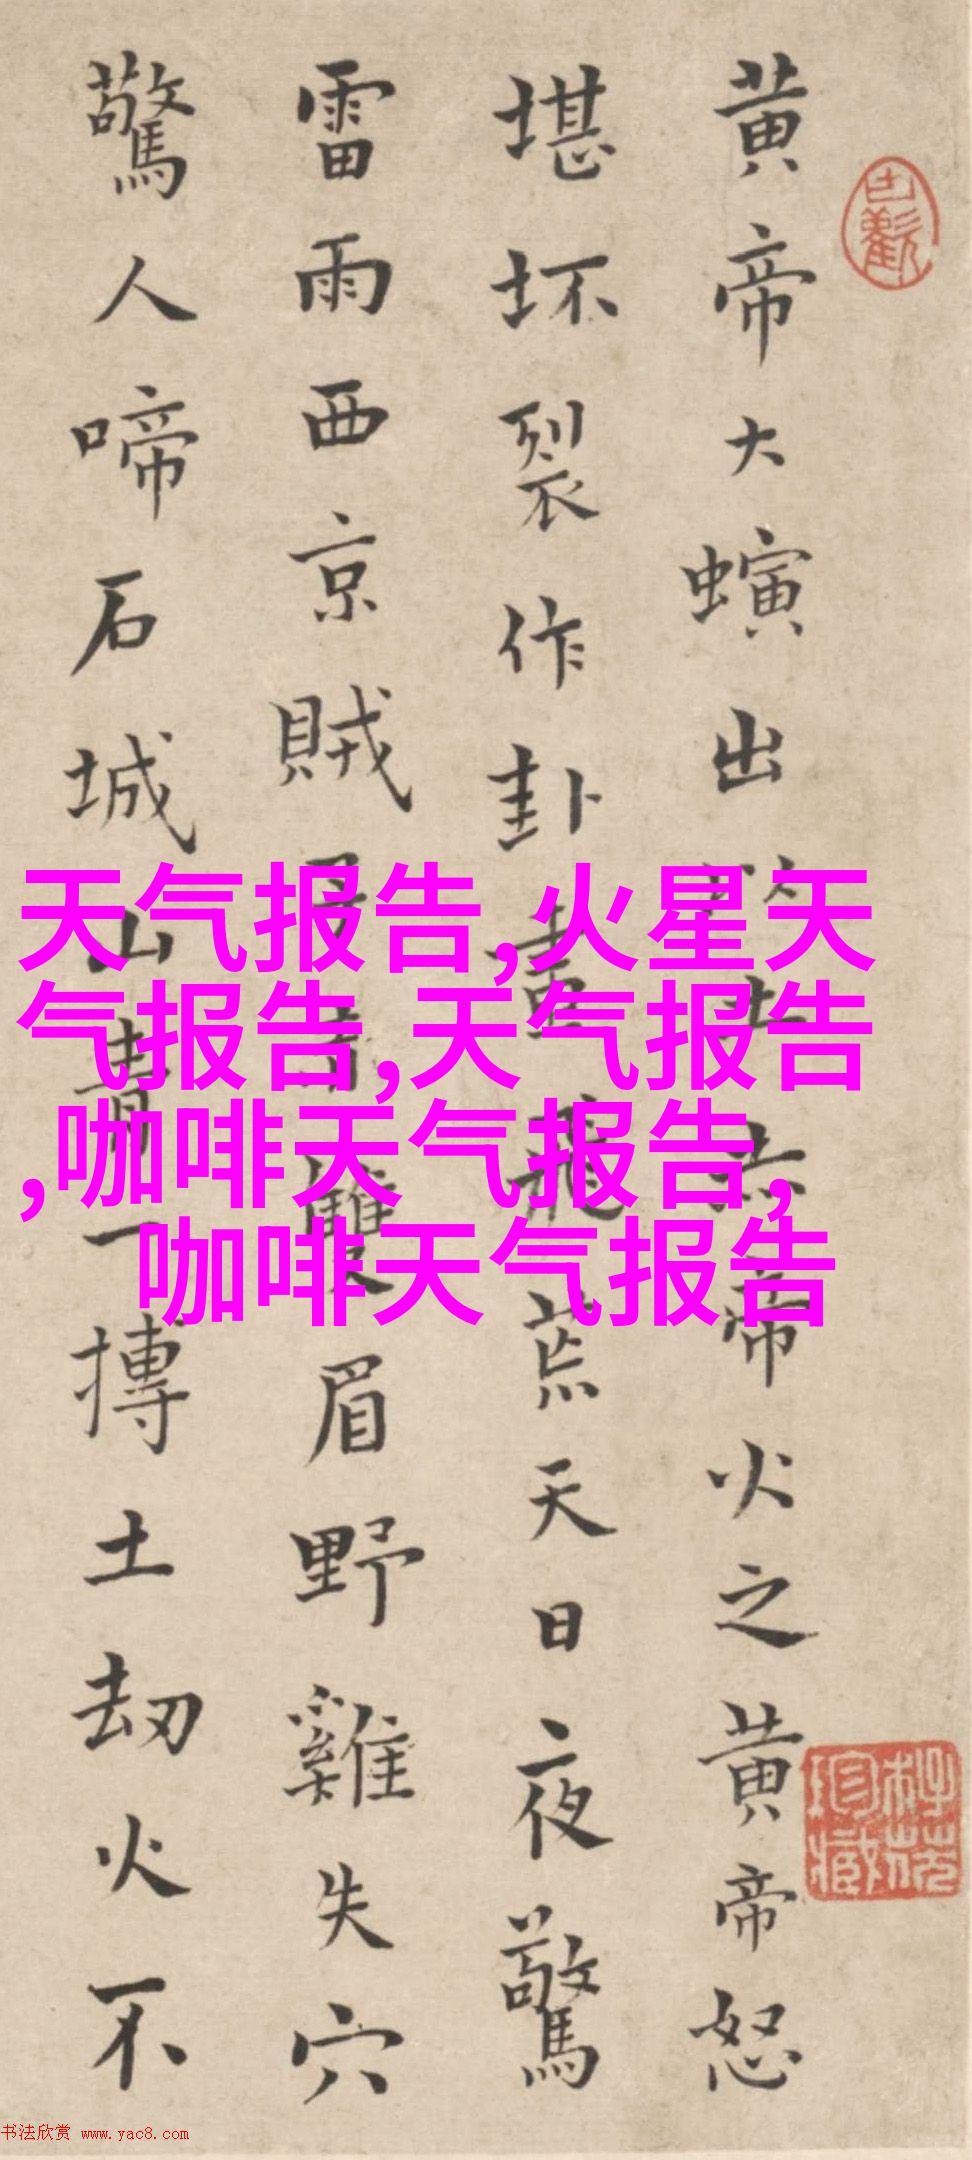 黄帝大螾出
帝火之黄帝怒
堪坏裂作卦
荒天日夜驚
雷雨西京賊
雙眉野雞失穴
驚人啼石城山青一摶土劫火不
天气报告,火星天
气报告,天气报告
,咖啡天气报告,
咖啡天气报告
书法欣赏 www.yac8.com